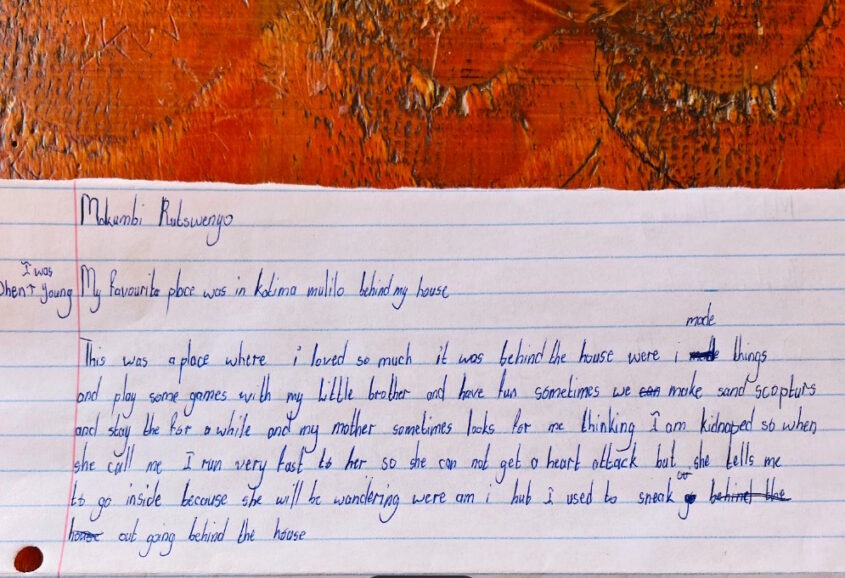 Makumbi Rutswenyo
I was
When young My favourite place was in katima mulilo behind my house
made
This was a place where i loved so much it was behind the house were i things
and play some games with my little brother and have fun sometimes we can make sand scopturs
and stay the for a while and my mother sometimes looks for me thinking I am kidnaped so when
she call me I run very fast to her so she can not get a heart attack but she tells me
to go inside because she will be wandering were am i hub I used to sneak behind the
house out going behind the house